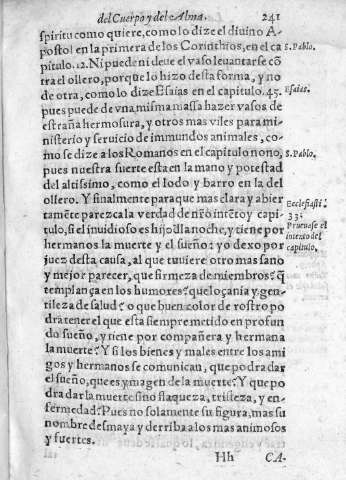 del Cuerpo y del Alma. 241
spiritu como quiere, como lo dize el diuino A-
postol en la primera de los Corinthios, en el ca S. Pablo.
pitulo. 12. Ni puede ni deue el vaso leuantarse cõ
tra el ollero, porque lo hizo desta forma, y no
de otra, como lo dize Esaias en el capitulo. 45. Esaias.
pues puede de vna misma massa hazer vasos de
estraña hermosura, y otros mas viles para mi-
nisterio y seruicio de immundos animales, co-
mo se dize a los Romanos en el capitulo nono, S. Pablo.
pues nuestra suerte esta en la mano y potestad
del altissimo, como el lodo y barro en la del
ollero. Y finalmente para que mas clara y abier Ecclesiasti.
tamẽte parezca la verdad de nr̃o intẽto y capi- 33.
tulo, si el inuidioso es hijo d̃ la noche, y tiene por Prueuase el
hermanos la muerte y el sueño: yo dexo por intento del
juez desta causa, al que tuuiere otro mas sano capitulo.
y mejor parecer, que firmeza de miembros? q̃
templança en los humores? que loçania y gen-
tileza de salud? o que buen color de rostro po
dra tener el que esta siempre metido en profun
do sueño, y tiene por compañera y hermana
la muerte? Y si los bienes y males entre los ami
gos y hermanos se comunican, que podra dar
el sueño, que es ymagen de la muerte? Y que po
dra dar la muerte sino flaqueza, tristeza, y en-
fermedad? Pues no solamente su figura, mas su
nombre desmaya y derriba a los mas animosos
y fuertes.
Hh CA-